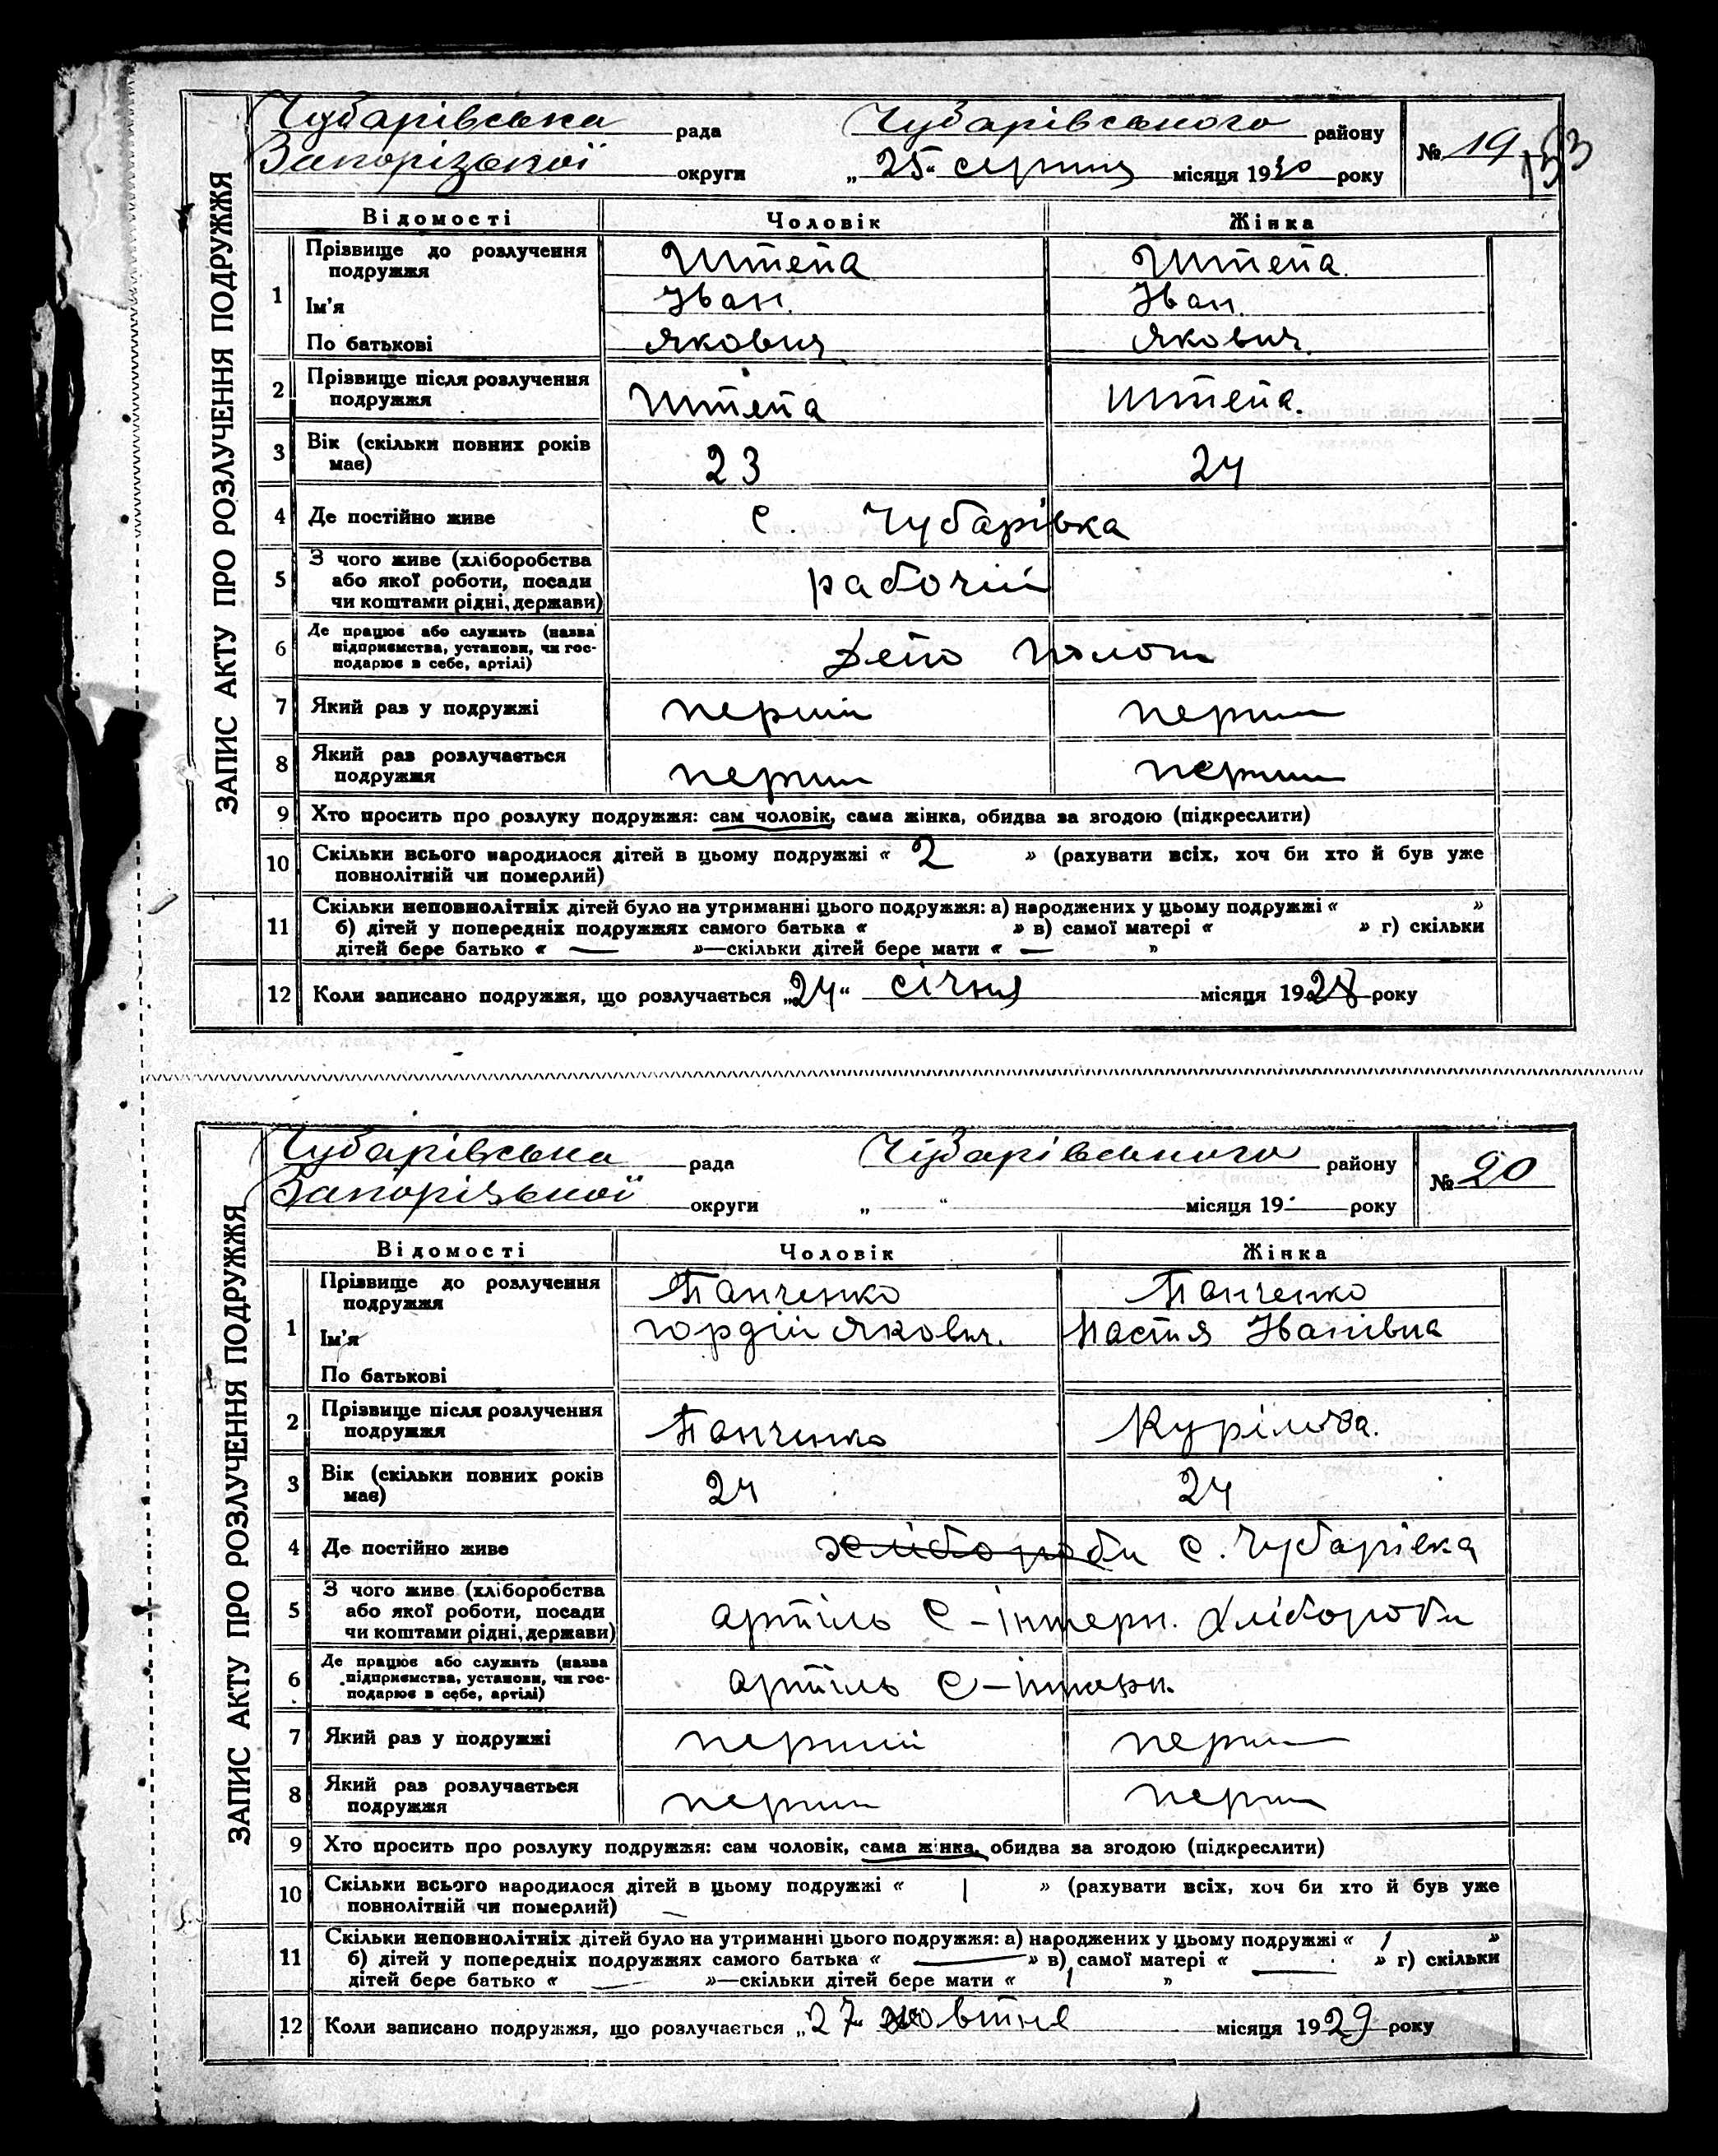 ЗАПИС АКТУ ПРО РОЗЛУЧЕННЯ ПОДРУЖЖЯ
Чубарівська рада Чубарівського району № 19 153
Запорізької округи „ 25 “ серпня місяця 1930 року
Відомості Чоловік Жінка
1 Прізвище до розлучення подружжя Штепа Штепа.
Ім'я Іван. Іван.
По батькові Якович Якович.
2 Прізвище після розлучення подружжя Штепа Штепа.
3 Вік (скільки повних років має) 23 24
4 Де постійно живе с. Чубарівка
5 З чого живе (хліборобства або якої роботи, посади чи коштами рідні, держави) рабочій
6 Де працює або служить (назва підприємства, установи, чи господарює в себе, артілі) Депо Пологи
7 Який раз у подружжі перший перший
8 Який раз розлучається подружжя перший перший
9 Хто просить про розлуку подружжя: сам чоловік, сама жінка, обидва за згодою (підкреслити)
10 Скільки всього народилося дітей в цьому подружжі « 2 » (рахувати всіх, хоч би хто й був уже
повнолітній чи померлий)
11 Скільки неповнолітніх дітей було на утриманні цього подружжя: а) народжених у цьому подружжі « »
б) дітей у попередніх подружжях самого батька « » в) самої матері « » г) скільки
дітей бере батько « — »—скільки дітей бере мати « — »
12 Коли записано подружжя, що розлучається „24“ січня місяця 1928 року
ЗАПИС АКТУ ПРО РОЗЛУЧЕННЯ ПОДРУЖЖЯ
Чубарівська рада Чубарівського району № 20
Запорізької округи „ “ місяця 19 року
Відомості Чоловік Жінка
1 Прізвище до розлучення подружжя Панченко Панченко
Ім'я Гордій Якович. Настя Іванівна
По батькові
2 Прізвище після розлучення подружжя Панченко
3 Вік (скільки повних років має) 24 24
4 Де постійно живе хлібороби с. Чубарівка
5 З чого живе (хліборобства або якої роботи, посади чи коштами рідні, держави) артіль С-інтерн. хлібороби
6 Де працює або служить (назва підприємства, установи, чи господарює в себе, артілі) артіль С-інтерн.
7 Який раз у подружжі перший перший
8 Який раз розлучається подружжя перший перший
9 Хто просить про розлуку подружжя: сам чоловік, сама жінка, обидва за згодою (підкреслити)
10 Скільки всього народилося дітей в цьому подружжі « 1 » (рахувати всіх, хоч би хто й був уже
повнолітній чи померлий) —
11 Скільки неповнолітніх дітей було на утриманні цього подружжя: а) народжених у цьому подружжі « 1 »
б) дітей у попередніх подружжях самого батька « — » в) самої матері « — » г) скільки
дітей бере батько « — »—скільки дітей бере мати « 1 »
12 Коли записано подружжя, що розлучається „27“ жовтня місяця 1929 року